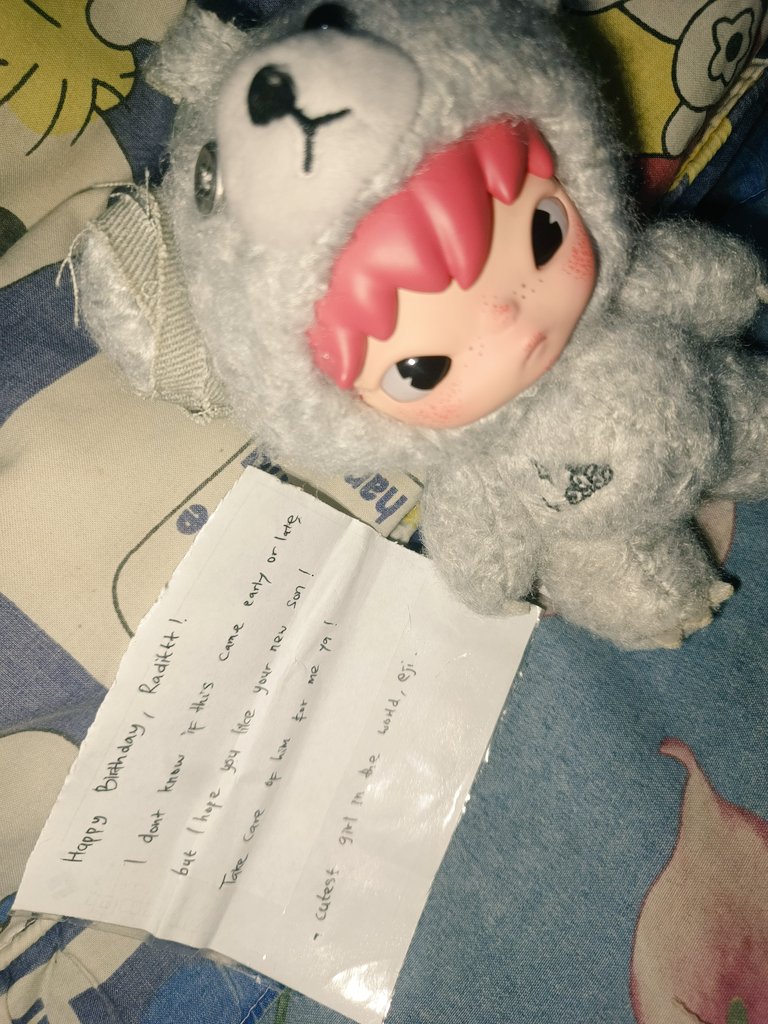 Happy Birthday, Radittt!
I dont know if this came early or late
but I hope you like your new son!
Take care of him for me ya!
- cutest girl in the world, eji.
han